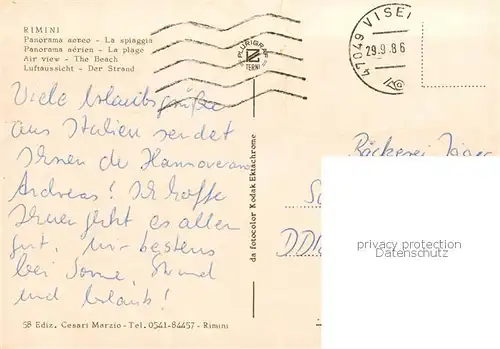 RIMINI
Panorama aereo - La spiaggia
Panorama aérien - La plage
Air view - The Beach
Luftaussicht - Der Strand
PLURIGRAF
TERNI
47049 VISE
29.9.86
Viele Urlaubsgrüße
aus Italien sendet
Ihnen der Hannoveraner
Andreas! Ich hoffe
Ihnen geht es allen
gut. Mir bestens
bei Sonne, Strand
und Urlaub!
da fotocolor Kodak Ektachrome
Bäckerei Jäger
DD
privacy protection
Datenschutz
58 Ediz. Cesari Marzio - Tel. 0541-84457 - Rimini